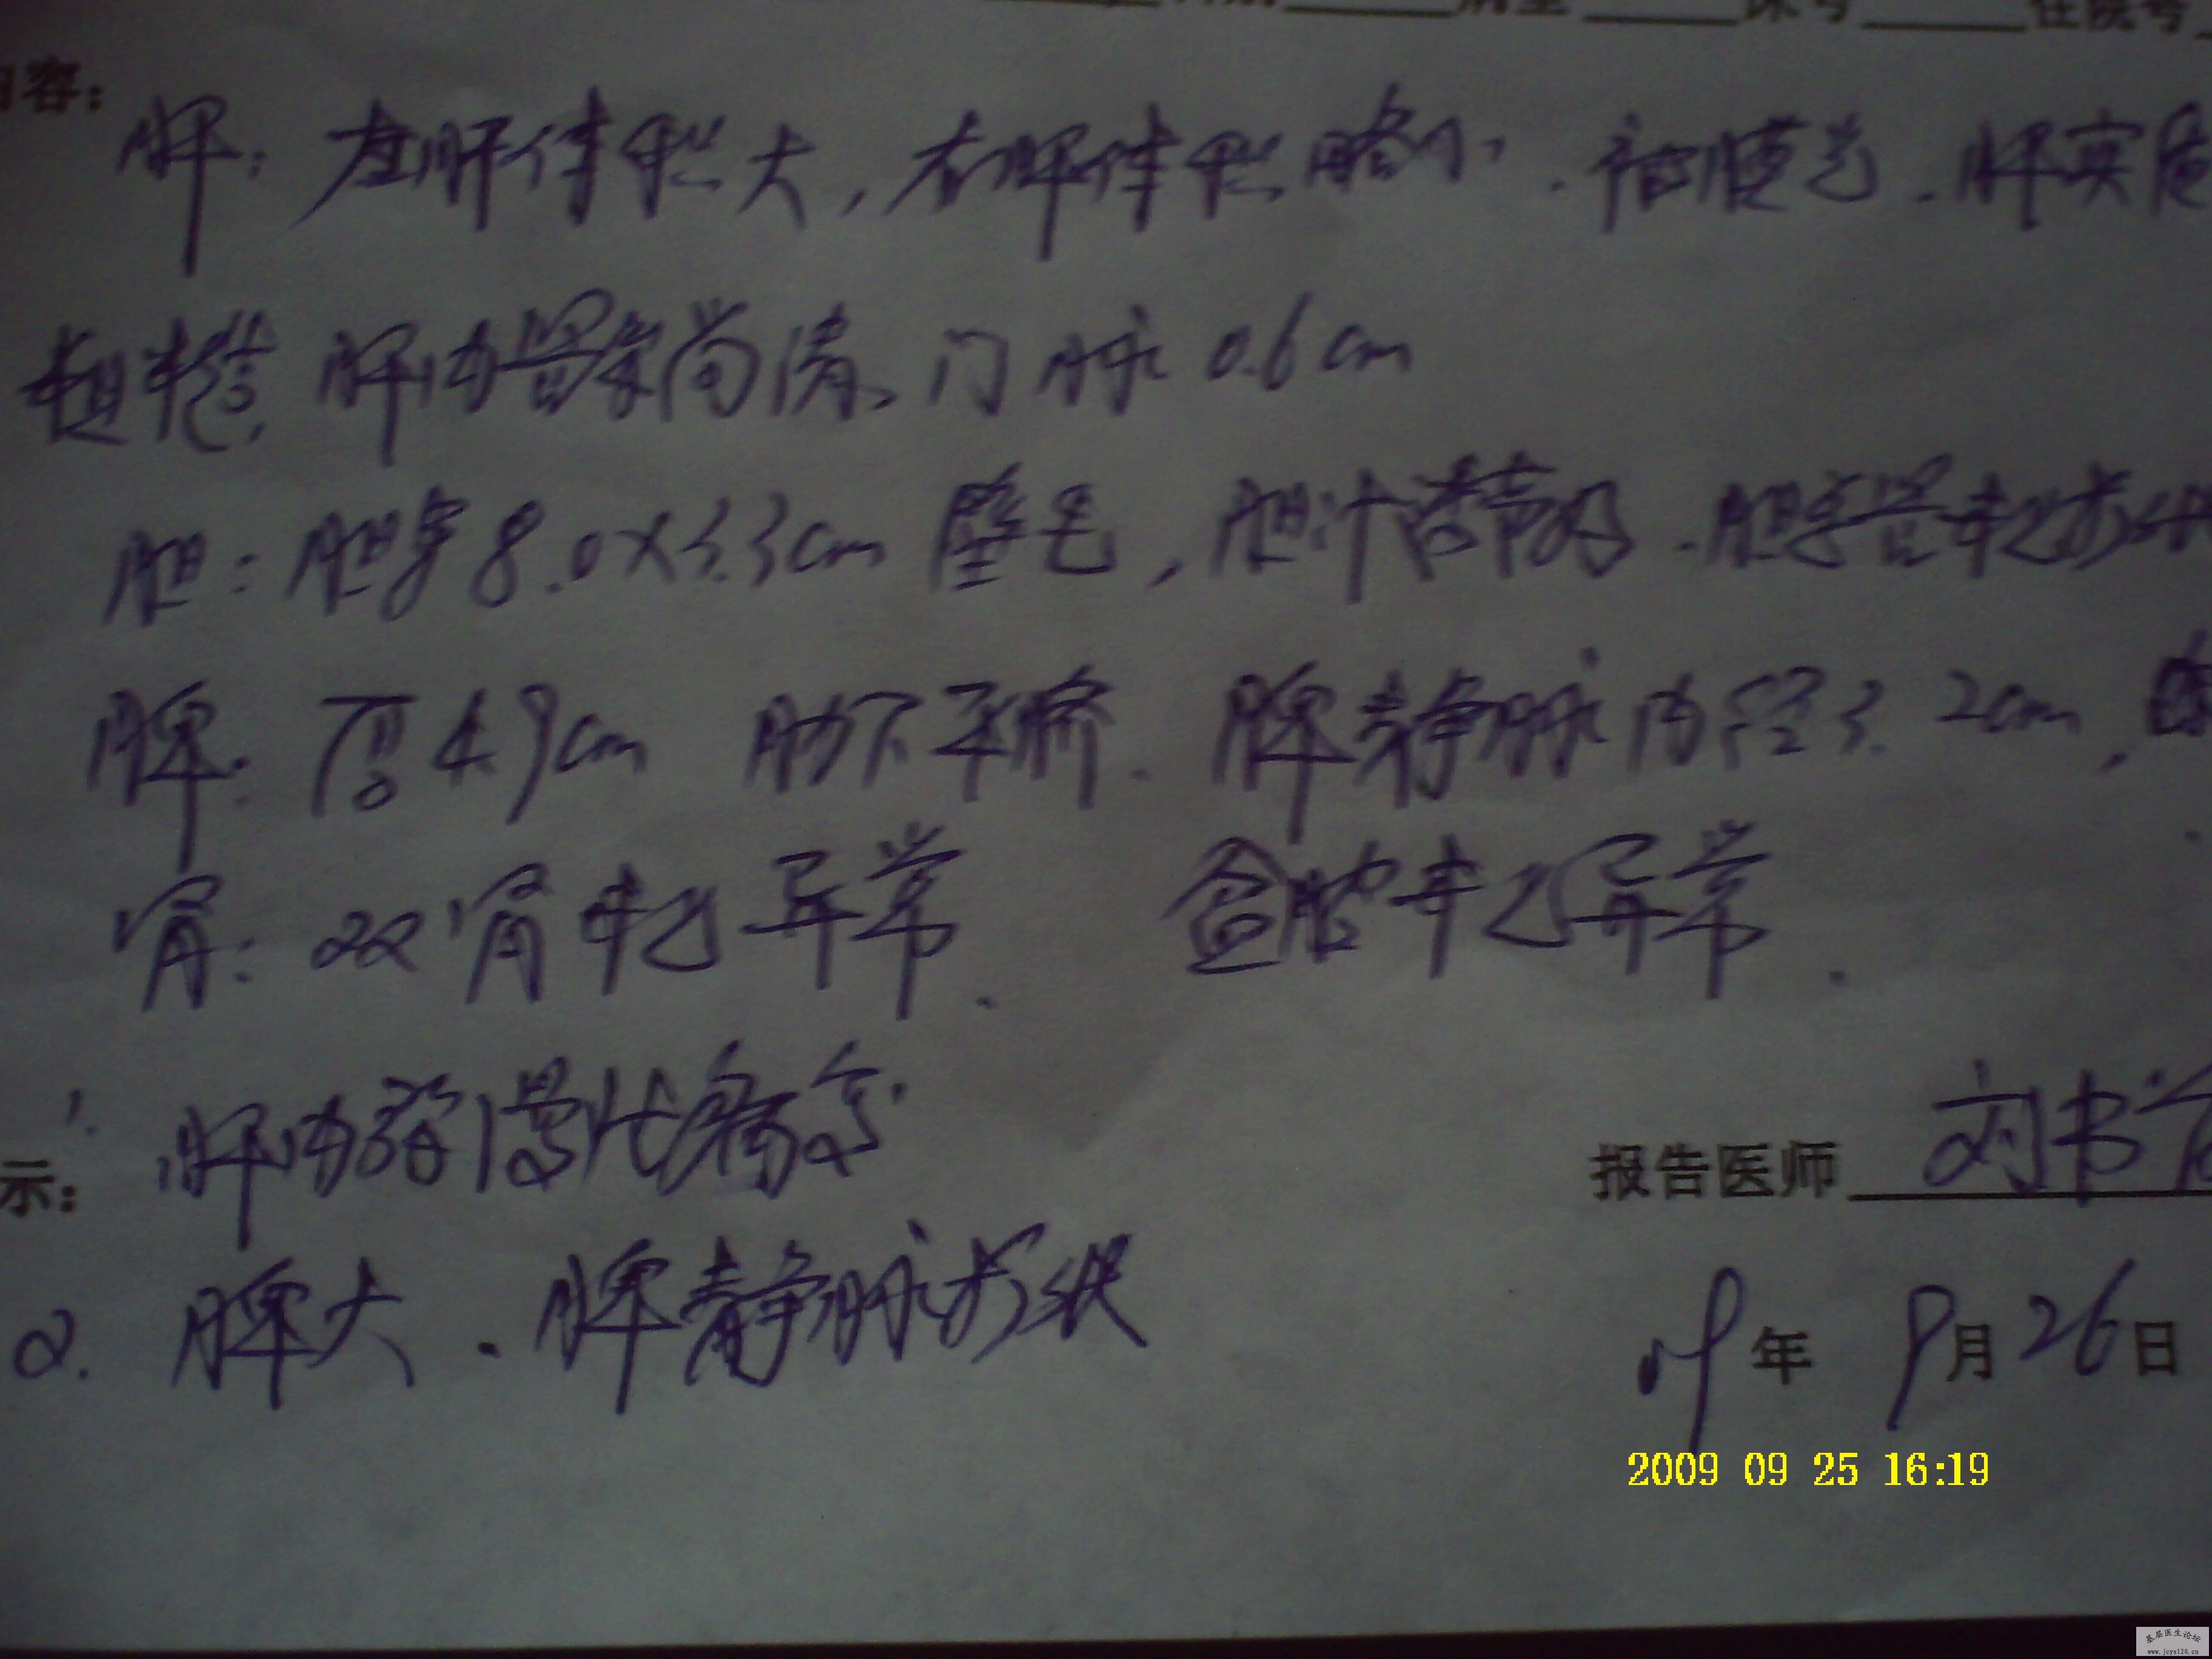 床号 住院号
内容：
肝：左肝体积大，右肝体积略小．包膜光．肝实质
粗糙，肝内管系尚清、门脉 0.6cm
胆：胆囊 8.0×3.3cm 壁毛，胆汁 ．胆总管未见
脾：厚 4.9cm 肋下平脐．脾静脉内径3.2cm，
肾：双肾未见异常． 盆腔未见异常．
1.
示： 肝内弥漫性病变
报告医师 刘书
2. 脾大．脾静脉
09年 9月26日
2009 09 25 16:19
基层医生论坛
www.jcys120.cn